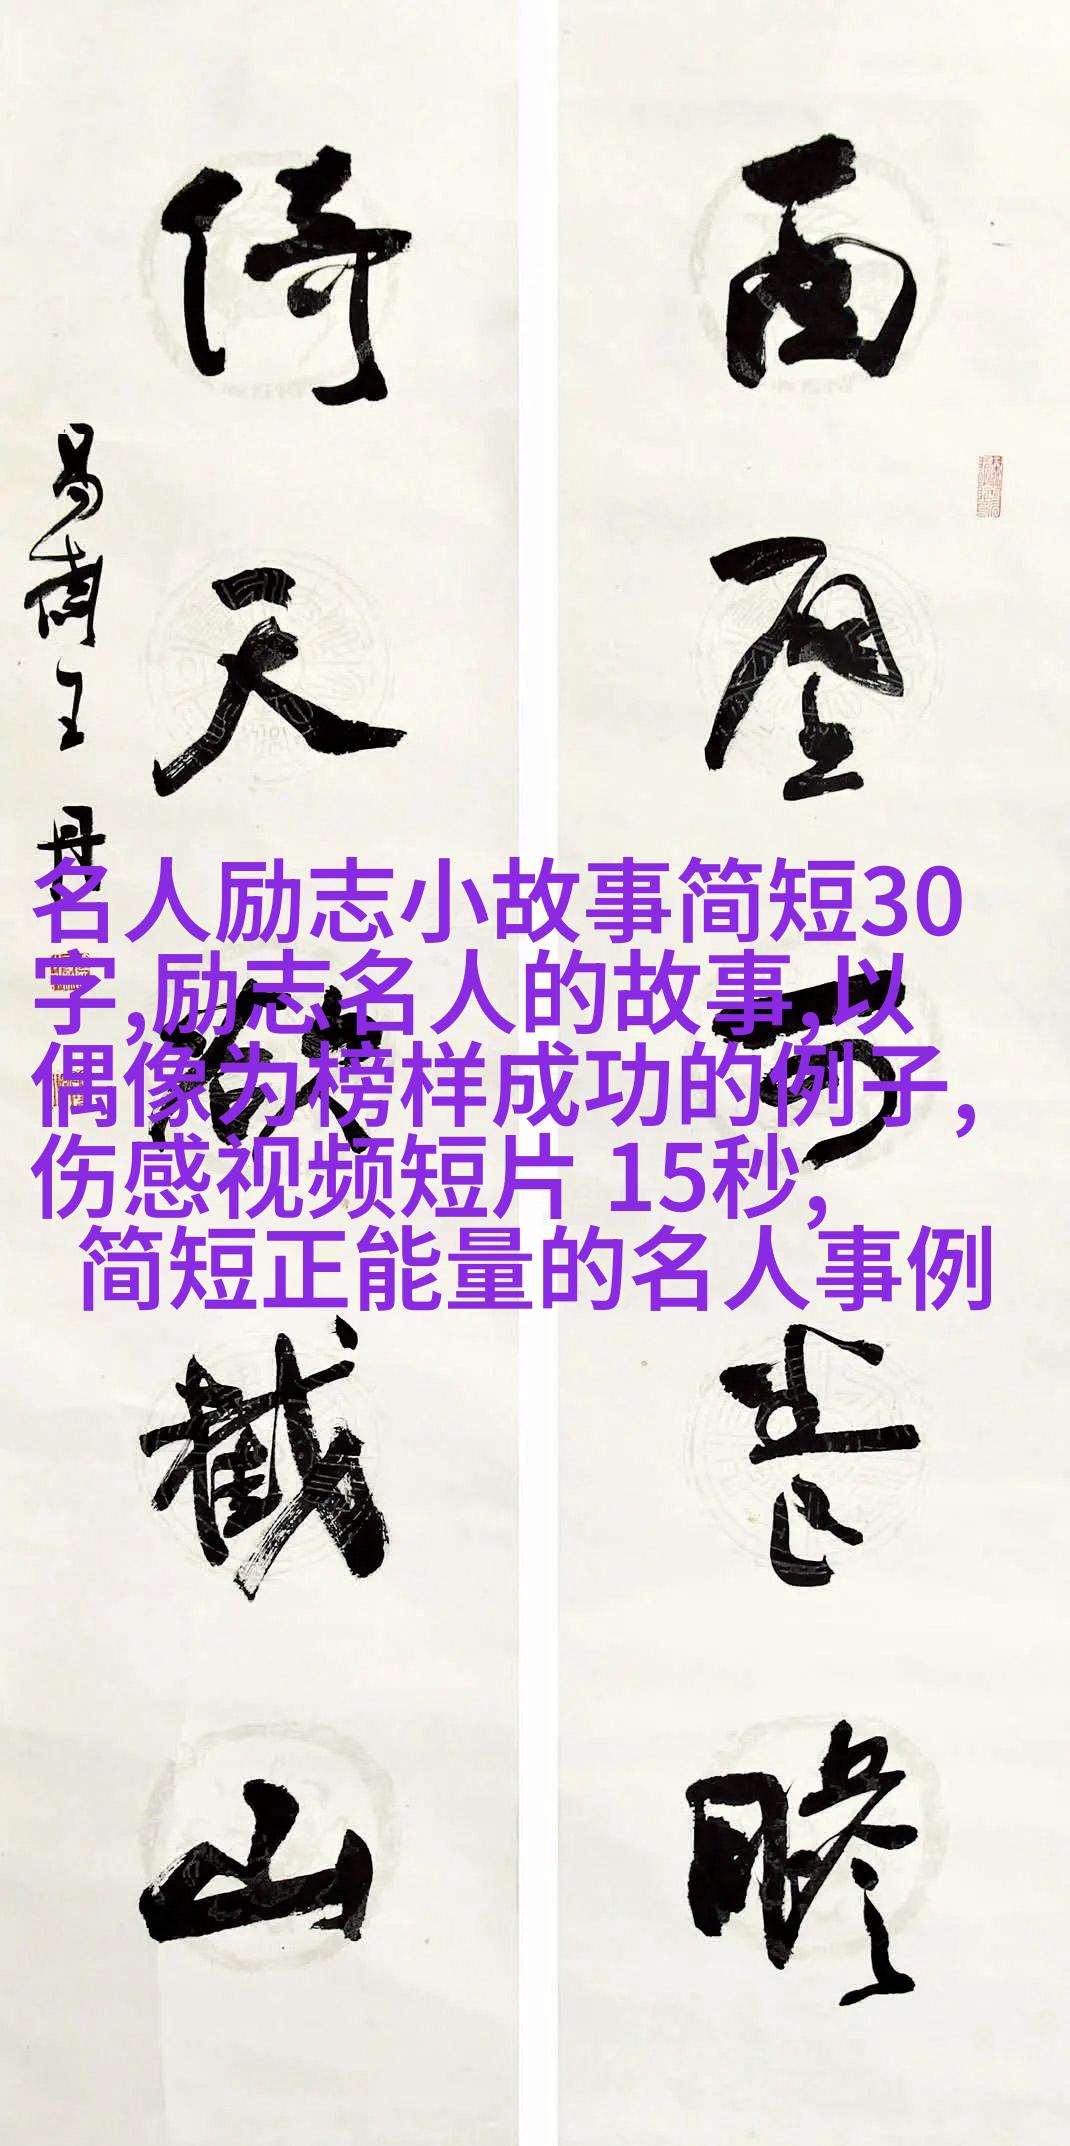 名人励志小故事简短30
字,励志名人的故事,以
偶像为榜样成功的例子,
伤感视频短片 15秒,
简短正能量的名人事例
面壁可瞻
倚天截山